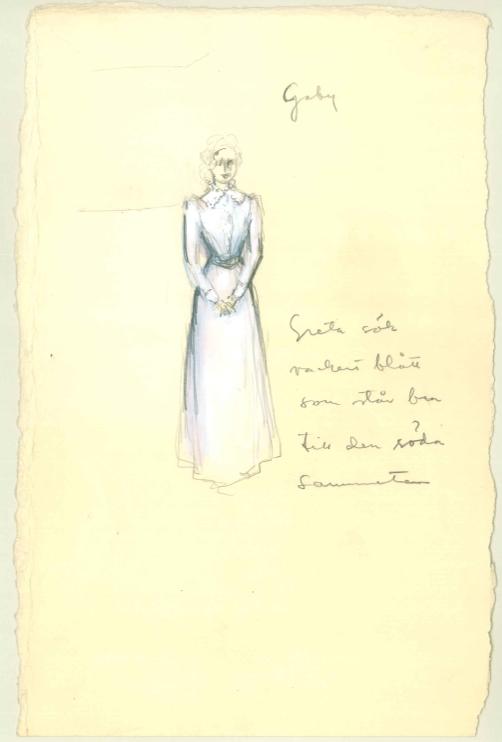 Gaby
Greta sök
vackert blått
som står bra
till den röda
sammeten